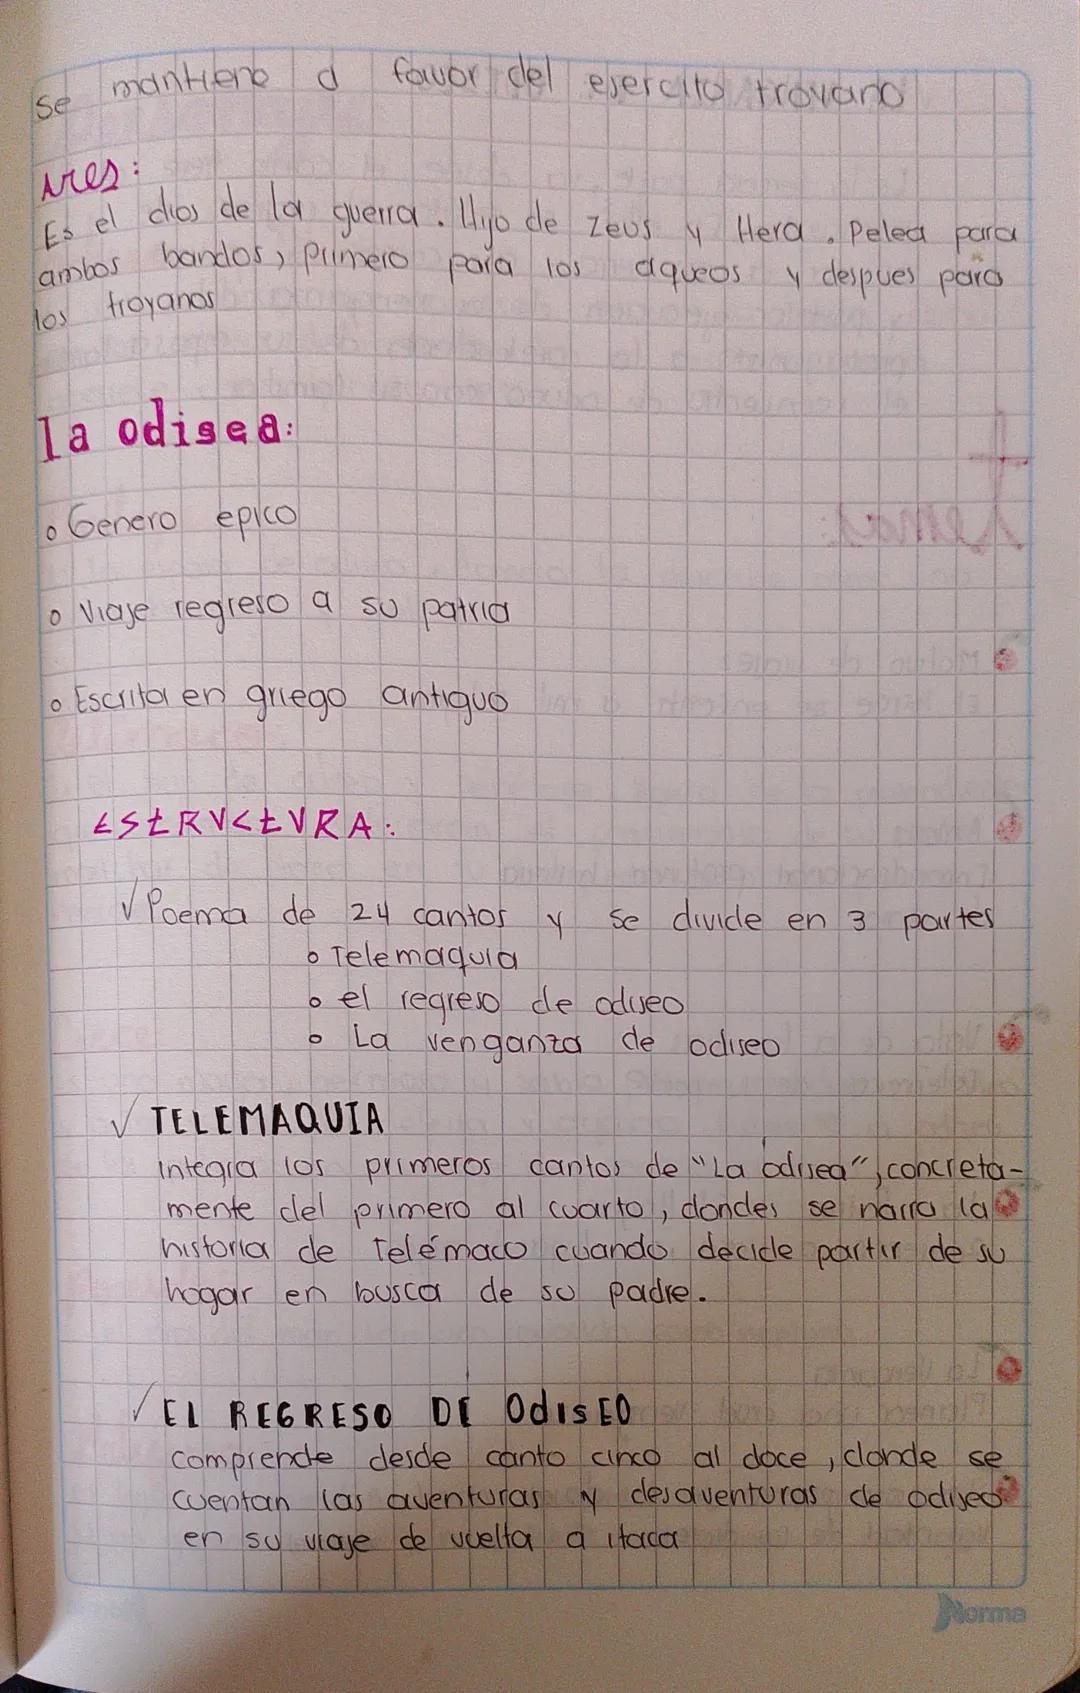 se mantiene a favor del ejercito troyano
Ares:
Es el dios de la guerra. Hijo de Zeus y Hera. Pelea para
ambos bandos, primero para los aqueos y despues para
los troyanos
la odisea:
o Genero epico
o Viaje regreso a su patria
o Escrita en griego antiguo
ESTRUCTURA:
√ Poema de 24 cantos y se divide en 3 partes
o Telemaquia
o el regreso de odiseo
o La venganza de odiseo
√ TELEMAQUIA
integra los primeros cantos de "La odisea", concreta-
mente del primero al cuarto, dondes se narra la
historia de Telémaco cuando decide partir de su
hogar en busca de su padre.
√ EL REGRESO DE OdISEO
comprende desde canto cinco al doce, donde se
cuentan las aventuras y desaventuras de odiseo
en su viaje de vuelta a itaca
Norma